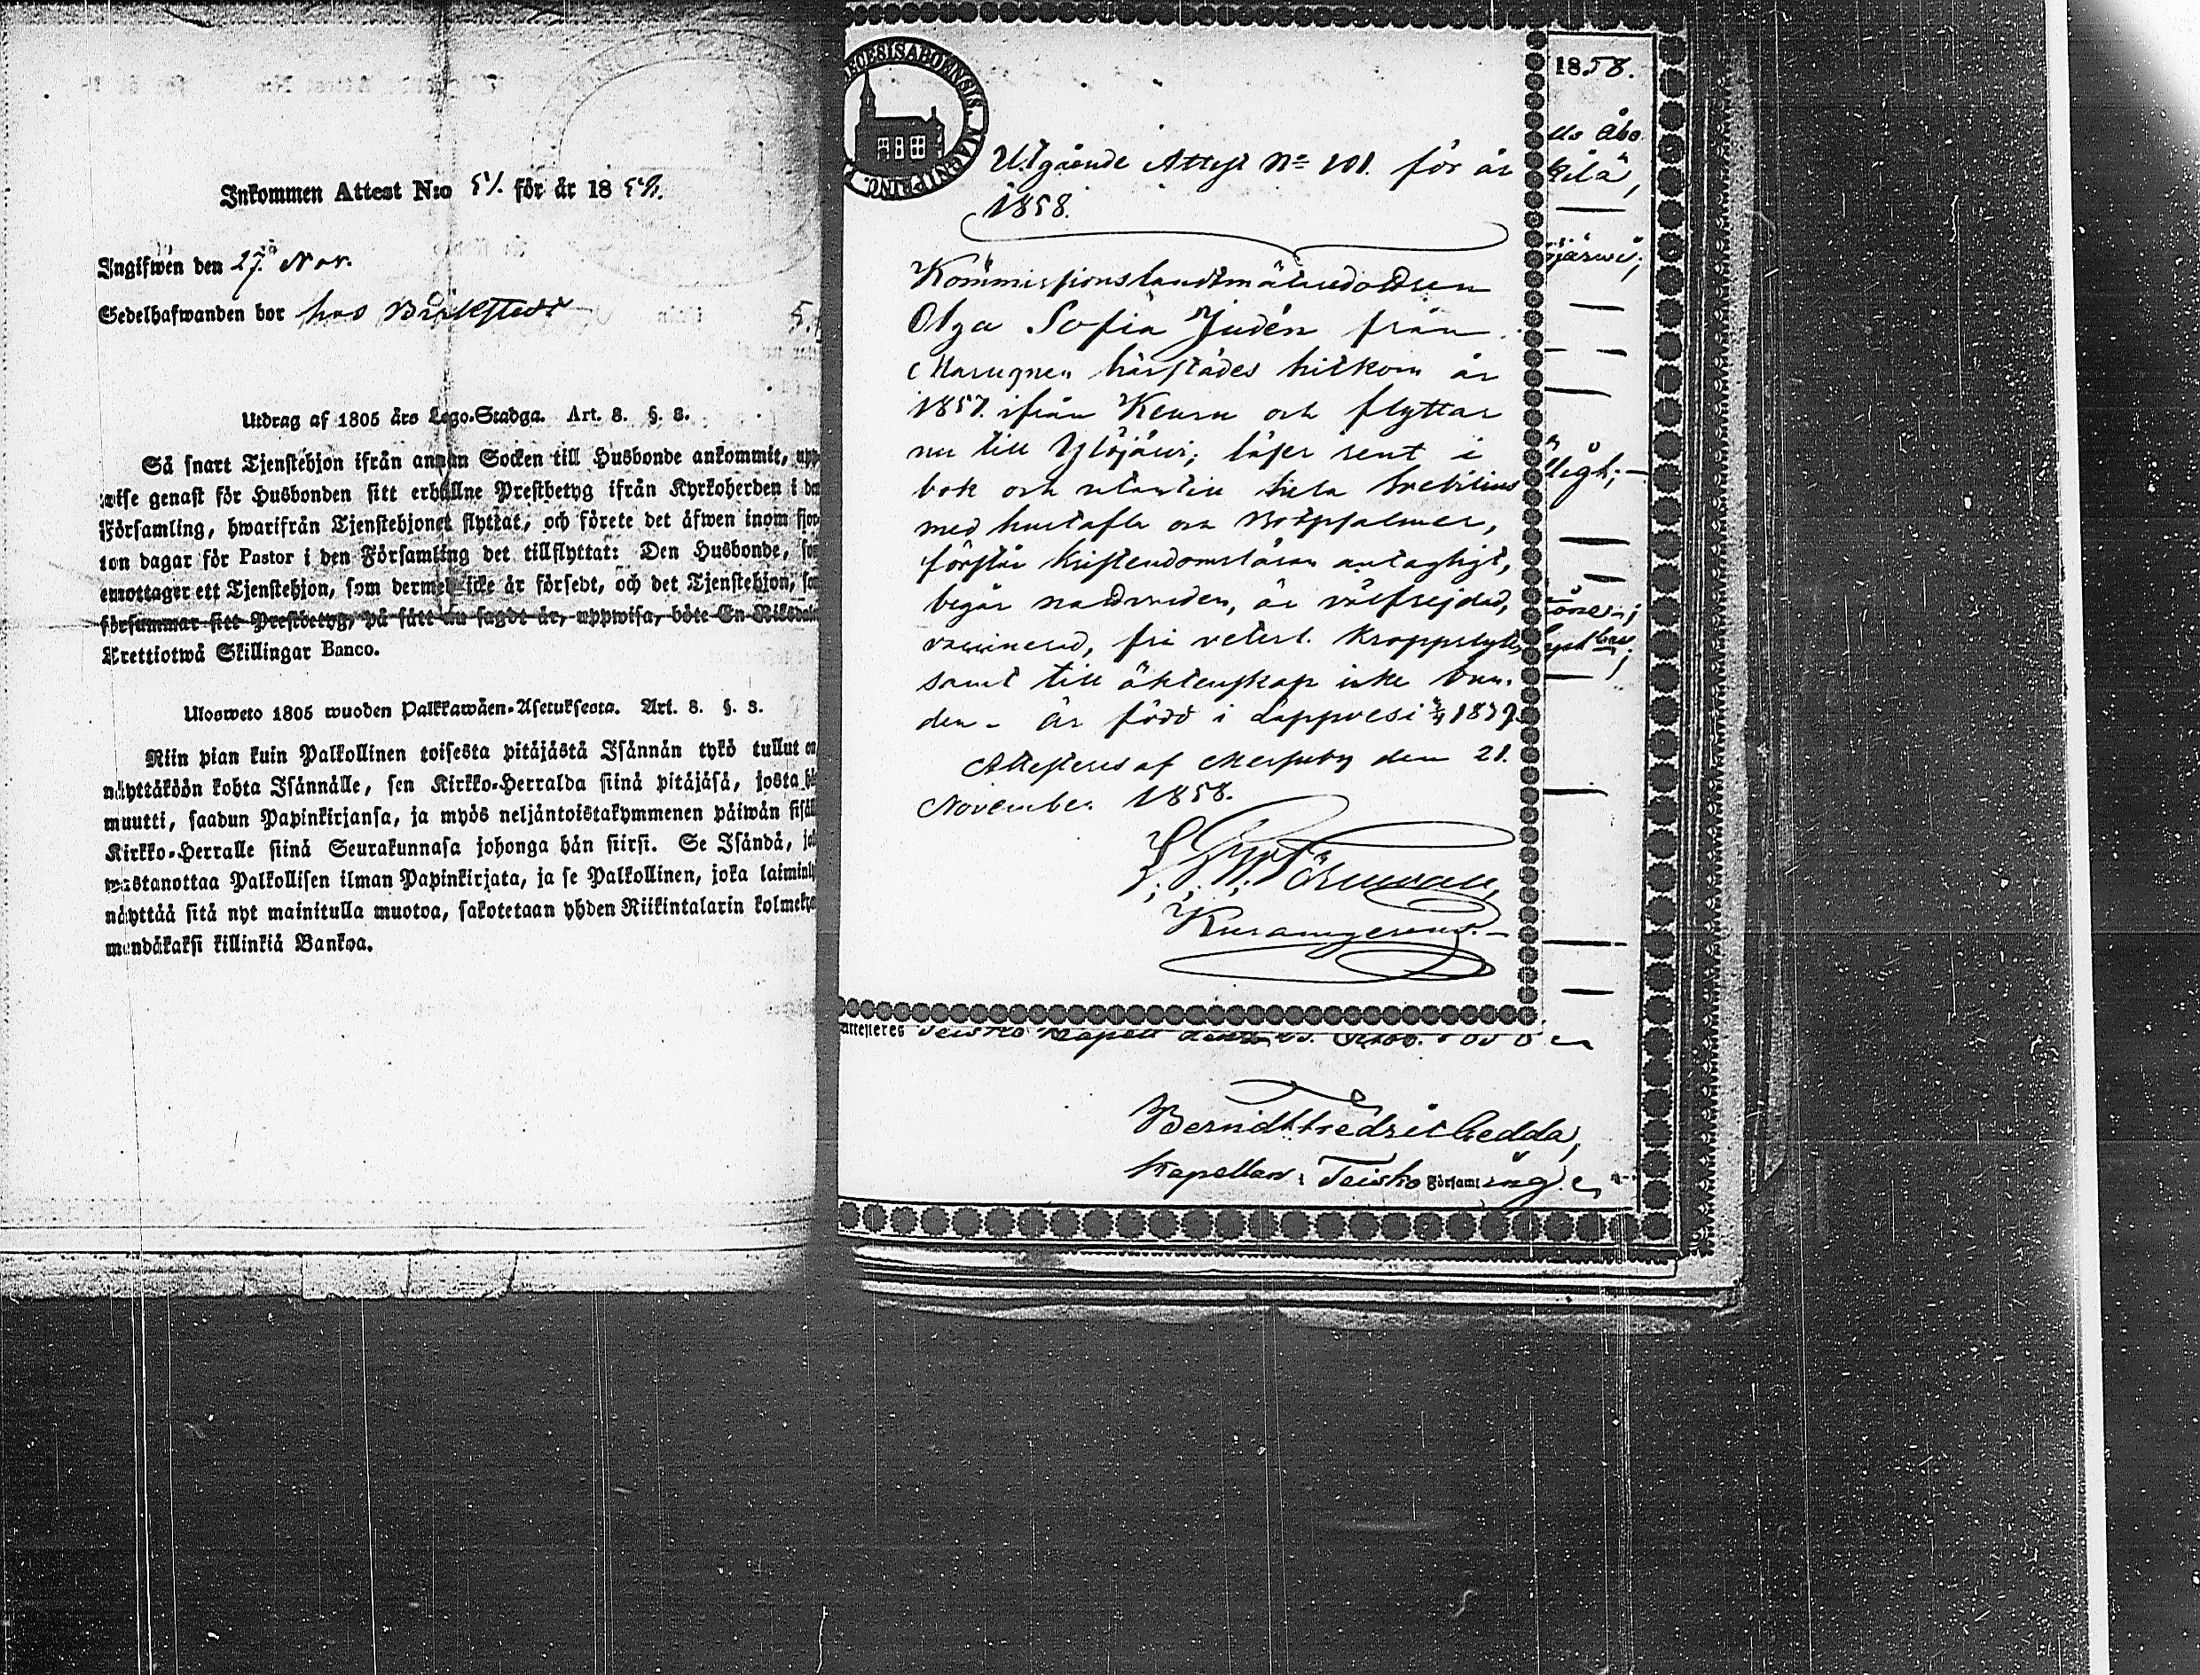 Inkommen Attest N:o 51. för år 1858.
Ingifwen den 27. Nov.
Sedelhafwanden bor hos
Utdrag af 1805 års Lego-Stadga. Art. 8. §. 8.
Så snart Tjenstehjon ifrån annan Socken till Husbonde ankommit, upp
wise genast för Husbonden sitt erhållne Prestbetyg ifrån Kyrkoherden i den
Församling, hwarifrån Tjenstehjonet flyttat, och förete det äfwen inom fjor
ton dagar för Pastor i den Församling det tillflyttat: Den Husbonde, som
emottager ett Tjenstehjon, som dermed icke är försedt, och det Tjenstehjon, som
försummar sitt Prestbetyg, på sätt nu sagdt är, uppwisa, böte En Riksdaler
Trettiotwå Skillingar Banco.
Ulosweto 1805 wuoden Palkkawäen-Asetuksesta. Art. 8. §. 8.
Niin pian kuin Palkollinen toisesta pitäjästä Isännän tykö tullut on
näyttäköön kohta Isännälle, sen Kirkko-Herralda siinä pitäjäsä, josta hän
muutti, saadun Papinkirjansa, ja myös neljäntoistakymmenen päiwän sisäl
Kirkko-Herralle siinä Seurakunnasa johonga hän siirsi. Se Isändä, joka
wastanottaa Palkollisen ilman Papinkirjata, ja se Palkollinen, joka laiminly
näyttää sitä nyt mainitulla muotoa, sakotetaan yhden Riikintalarin kolmeky
mendäkaksi killinkiä Bankoa.
DIOECESIS ABOENSIS
Utgående Attest No 101. för år
1858.
Kommissionslandtmätaredottren
Olga Sofia Judén från
Masugnen härstädes hitkom år
1857. ifrån Keuru och flyttar
nu till Ylöjärvi; läser rent i
bok och utantill hela
med hustafla och Botpsalmer,
förstår kristendomsläran antagligt,
begår nattvarden, är välfrejdad,
vaccinerad, fri veterl. kroppslyte,
samt till äktenskap icke bun-
den - är född i Lappvesi 1839.
Attesteras af Messuby den 21.
November 1858.
1858.
järwi;
Attesteres Teisko Kapell
Berndt Fredrik Gedda,
Kapellan i Teisko Församling.